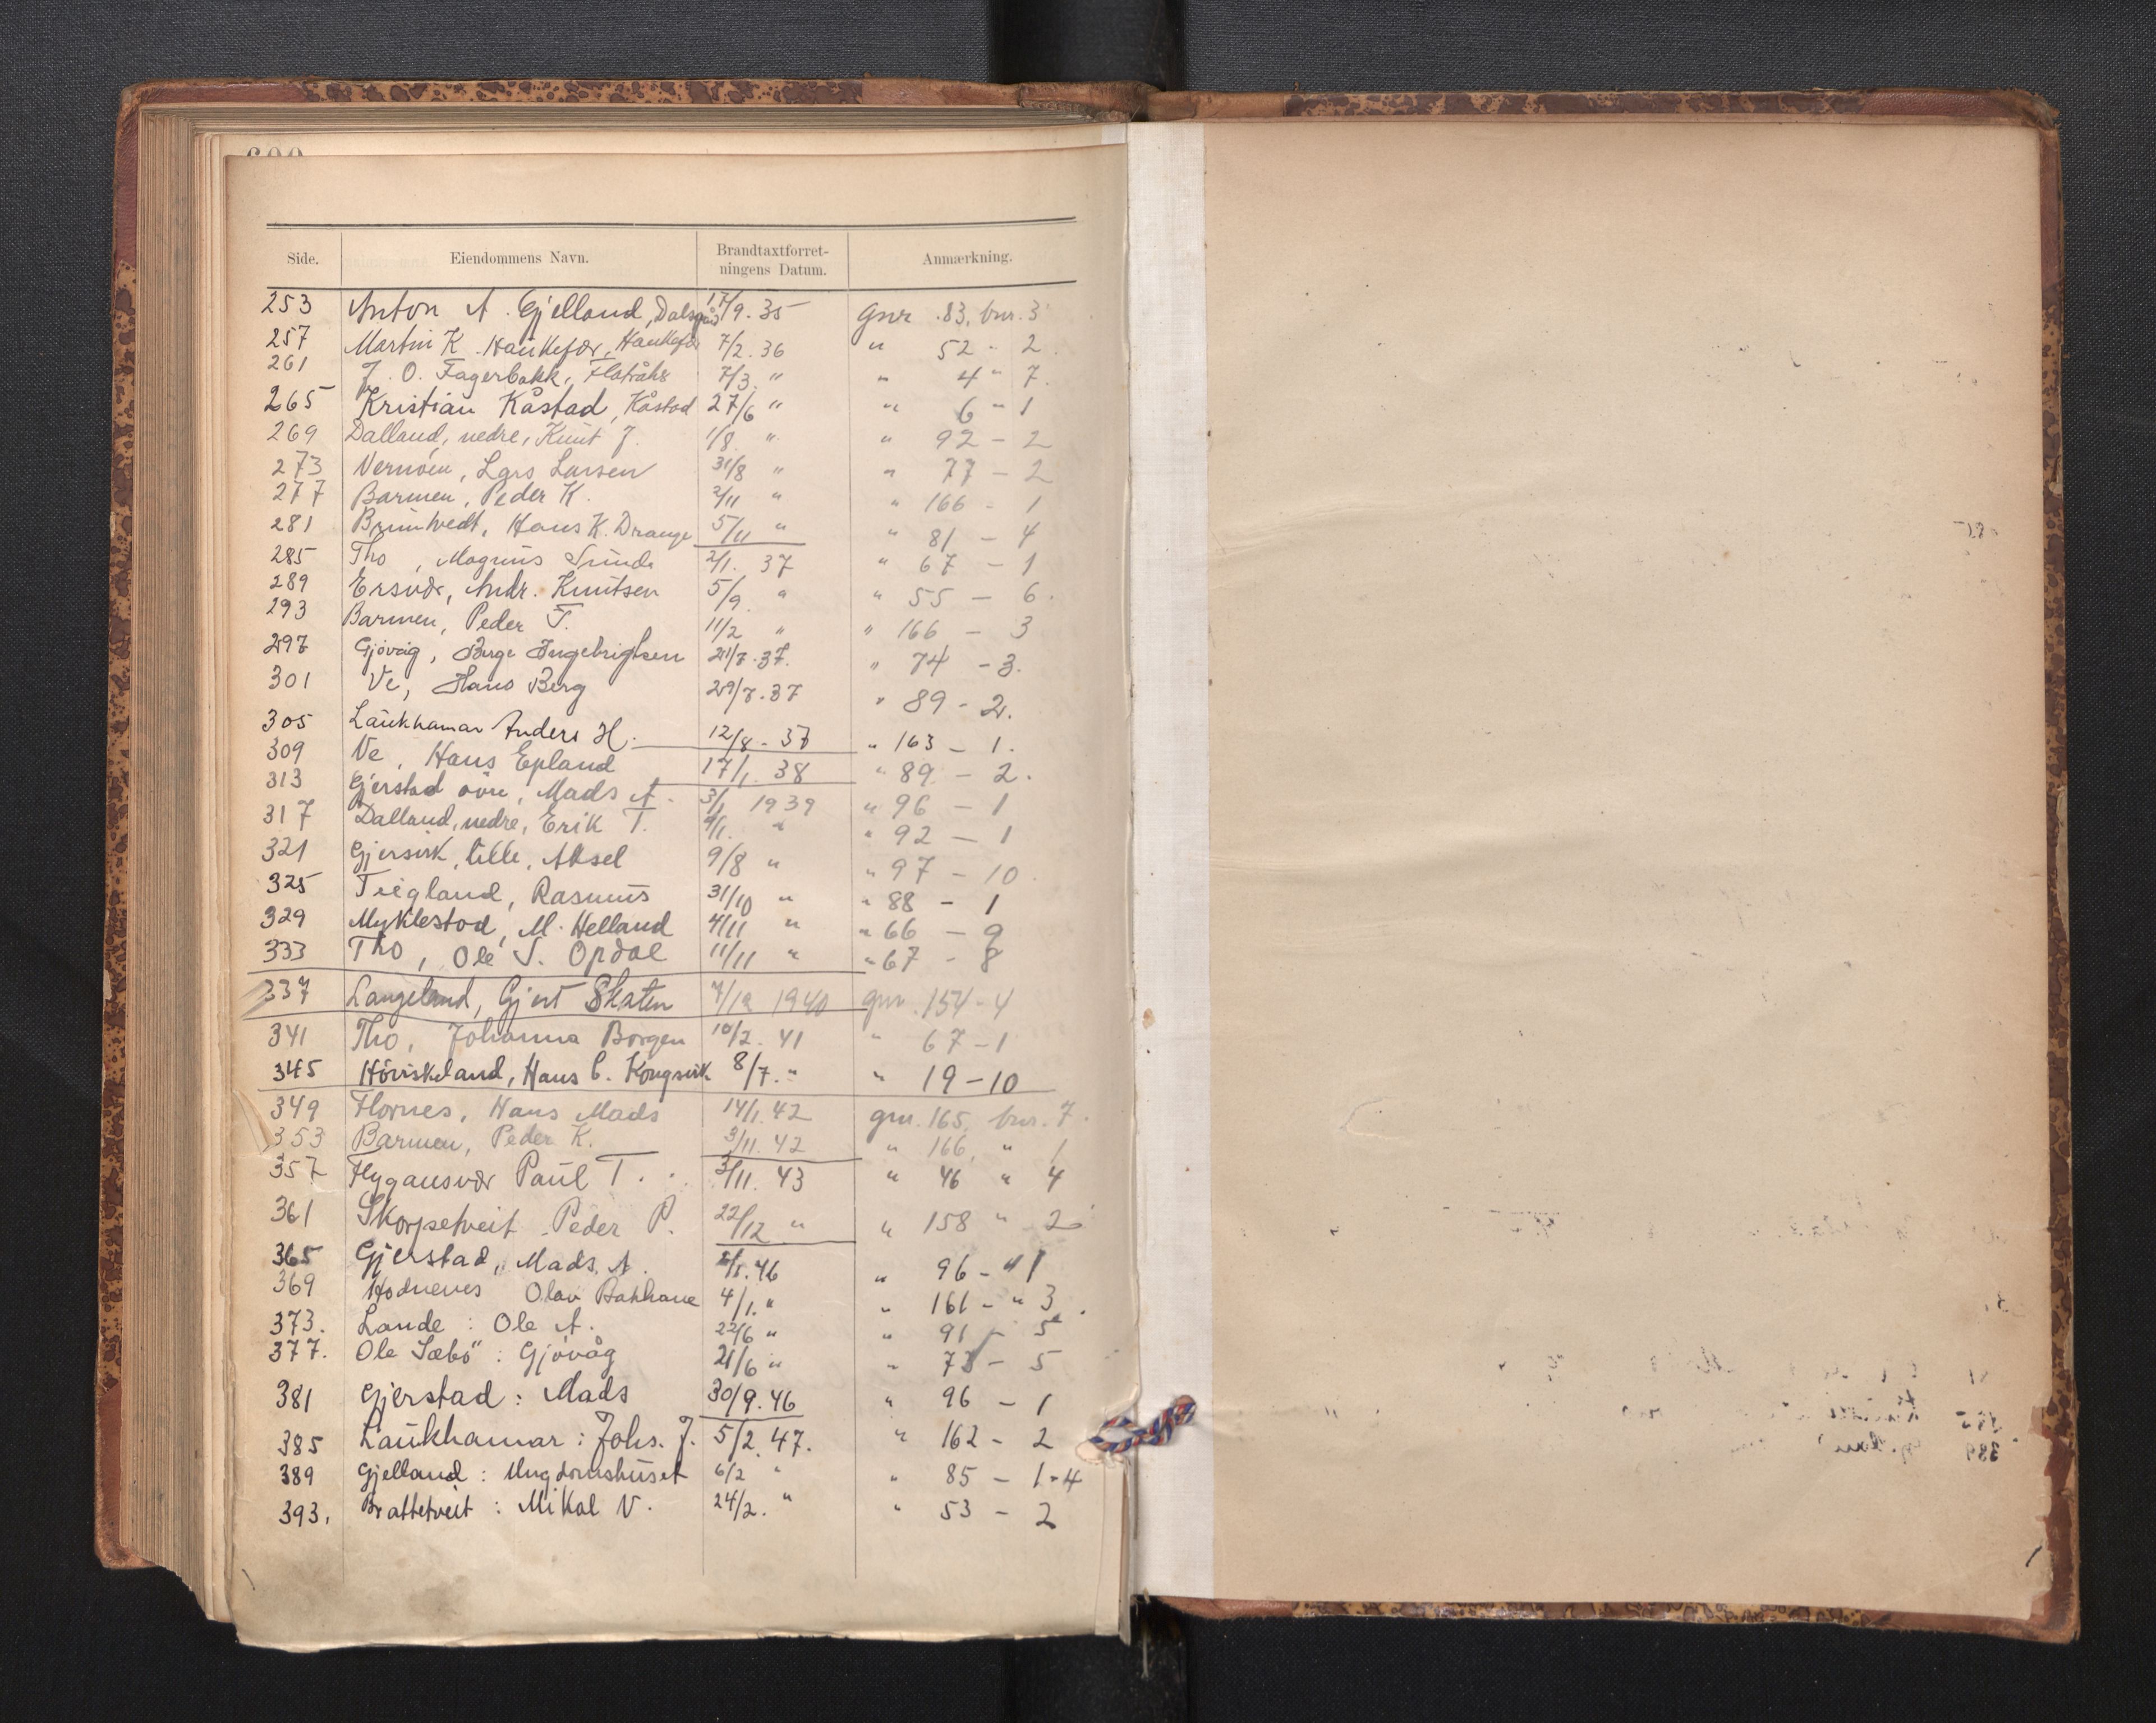 Side. Eiendommens Navn. Brandtaxtforret-ningens Datum. Anmærkning.
253 Anton A. Gjelland, 17/9. 35 gnr. 83, bnr. 3
257 Martin K. Haukefær, Haukefær 7/2. 36 " 52 - 2.
261 J. O. Fagerbakk, Flatråker 7/3. " " 4 " 7.
265 Kristian Kåstad, Kåstad 27/6 " " 6 " 1
269 Dalland, nedre, Knut J. 1/8 " " 92 - 2
273 Vernöen, Lars Larsen 31/8 " " 77 - 2
277 Barmen, Peder K. 2/11 " " 166 - 1
281 Bruntvedt, Hans K. Drange 5/11 " " 81 - 4
285 Tho, Magnus Sunde 2/1. 37 " 67 - 1
289 Ersvær, Andr. Knutsen 5/9. " " 55 - 6.
293 Barmen, Peder T. 11/2 " " 166 - 3
297 Gjövåg, Børge Ingebrigtsen 21/7. 37. " 74 - 3.
301 Ve, Hans Berg 29/7. 37 " 89 - 2.
305 Laukhamar Anders H. 12/8 - 37 " 163 - 1.
309 Ve, Hans Epland 17/1. 38 " 89 - 2.
313 Gjerstad övre, Mads A. 3/1 1939 " 96 - 1
317 Dalland, nedre, Erik T. " " 92 - 1
321 Gjersvik, lille, Aksel 9/8 " " 97 - 10
325 Teigland, Rasmus 31/10 " " 88 - 1
329 Myklestad, M. Helland 4/11 " " 66 - 9
333 Tho, Ole S. Opdal 11/11 " " 67 - 8
337 Langeland, Gjert Skaten 7/12 1940 gnr. 154 - 4
341 Tho, Johanna Borgen 10/2. 41 " 67 - 1
345 Höviskeland, Hans C. Kongsvik 8/7. " " 19 - 10
349 Flornes, Hans Mads 14/1. 42 gnr. 165, bnr. 7.
353 Barmen, Peder K. 3/11. 42 " 166, " 1
357 Flygansvær Paul T. 3/11. 43 " 46 " 4
361 Skorpetveit Peder P. 22/12 " " 158 " 2
365 Gjerstad, Mads. A. 2/1. 46 " 96 - " 1
369 Hodnenes Olav Bakhane 4/1. " " 161 - " 3.
373. Lande : Ole A. 22/6 " " 91 - 5
377. Ole Sæbö : Gjövåg 21/6 " " 73 - 5
381 Gjerstad : Mads 30/9. 46 " 96 - 1
385 Laukhamar : Johs. J. 5/2. 47. " 162 - 2
389 Gjelland : Ungdomshuset 6/2 " " 85 - 1-4
393. Brattetveit : Mikal V. 24/2. " " 53 - 2